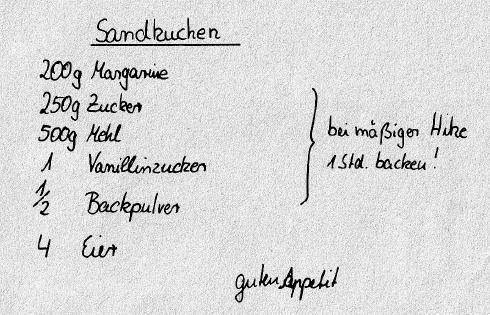 Sandkuchen
200g Margarine
250g Zucker
500g Mehl
1 Vanillinzucker
1/2 Backpulver
4 Eier
bei mäßiger Hitze
1 Std. backen!
guten Appetit